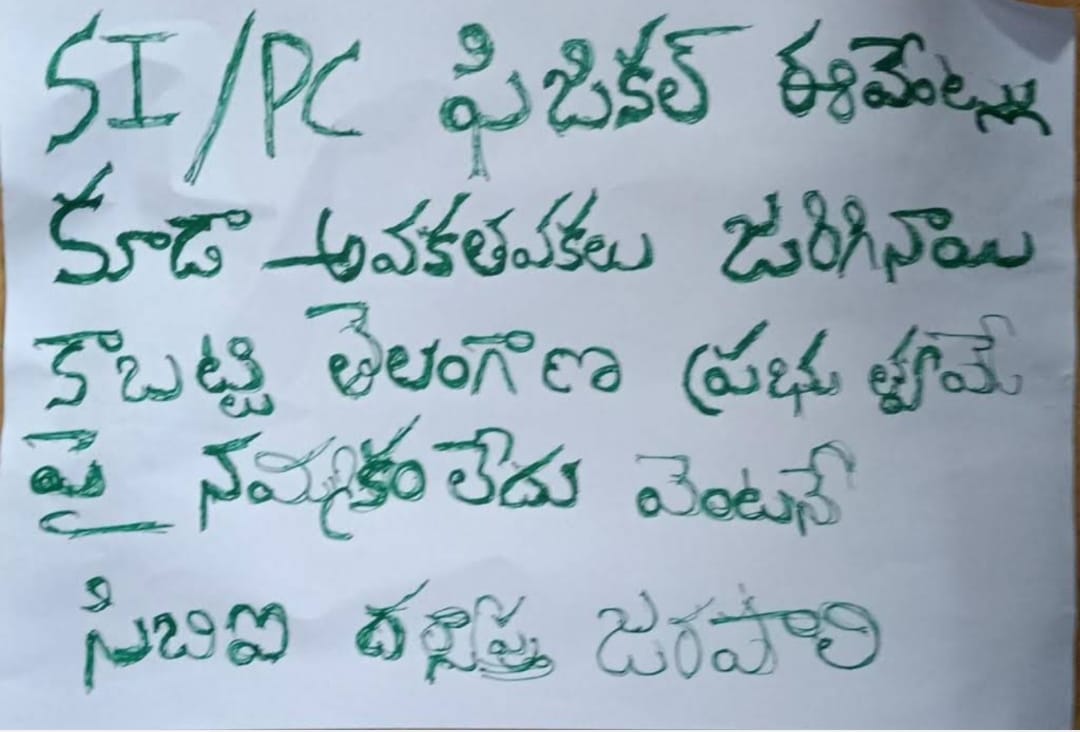 SI/PC ఫిజికల్ ఈవేంట్లు
కూడా అవకతవకలు జరిగినాయి
కాబట్టి తెలంగాణ ప్రభుత్వామే
పై నమ్మకం లేదు వెంటనే
సిబిఐ దర్యాప్తు జరపాలి